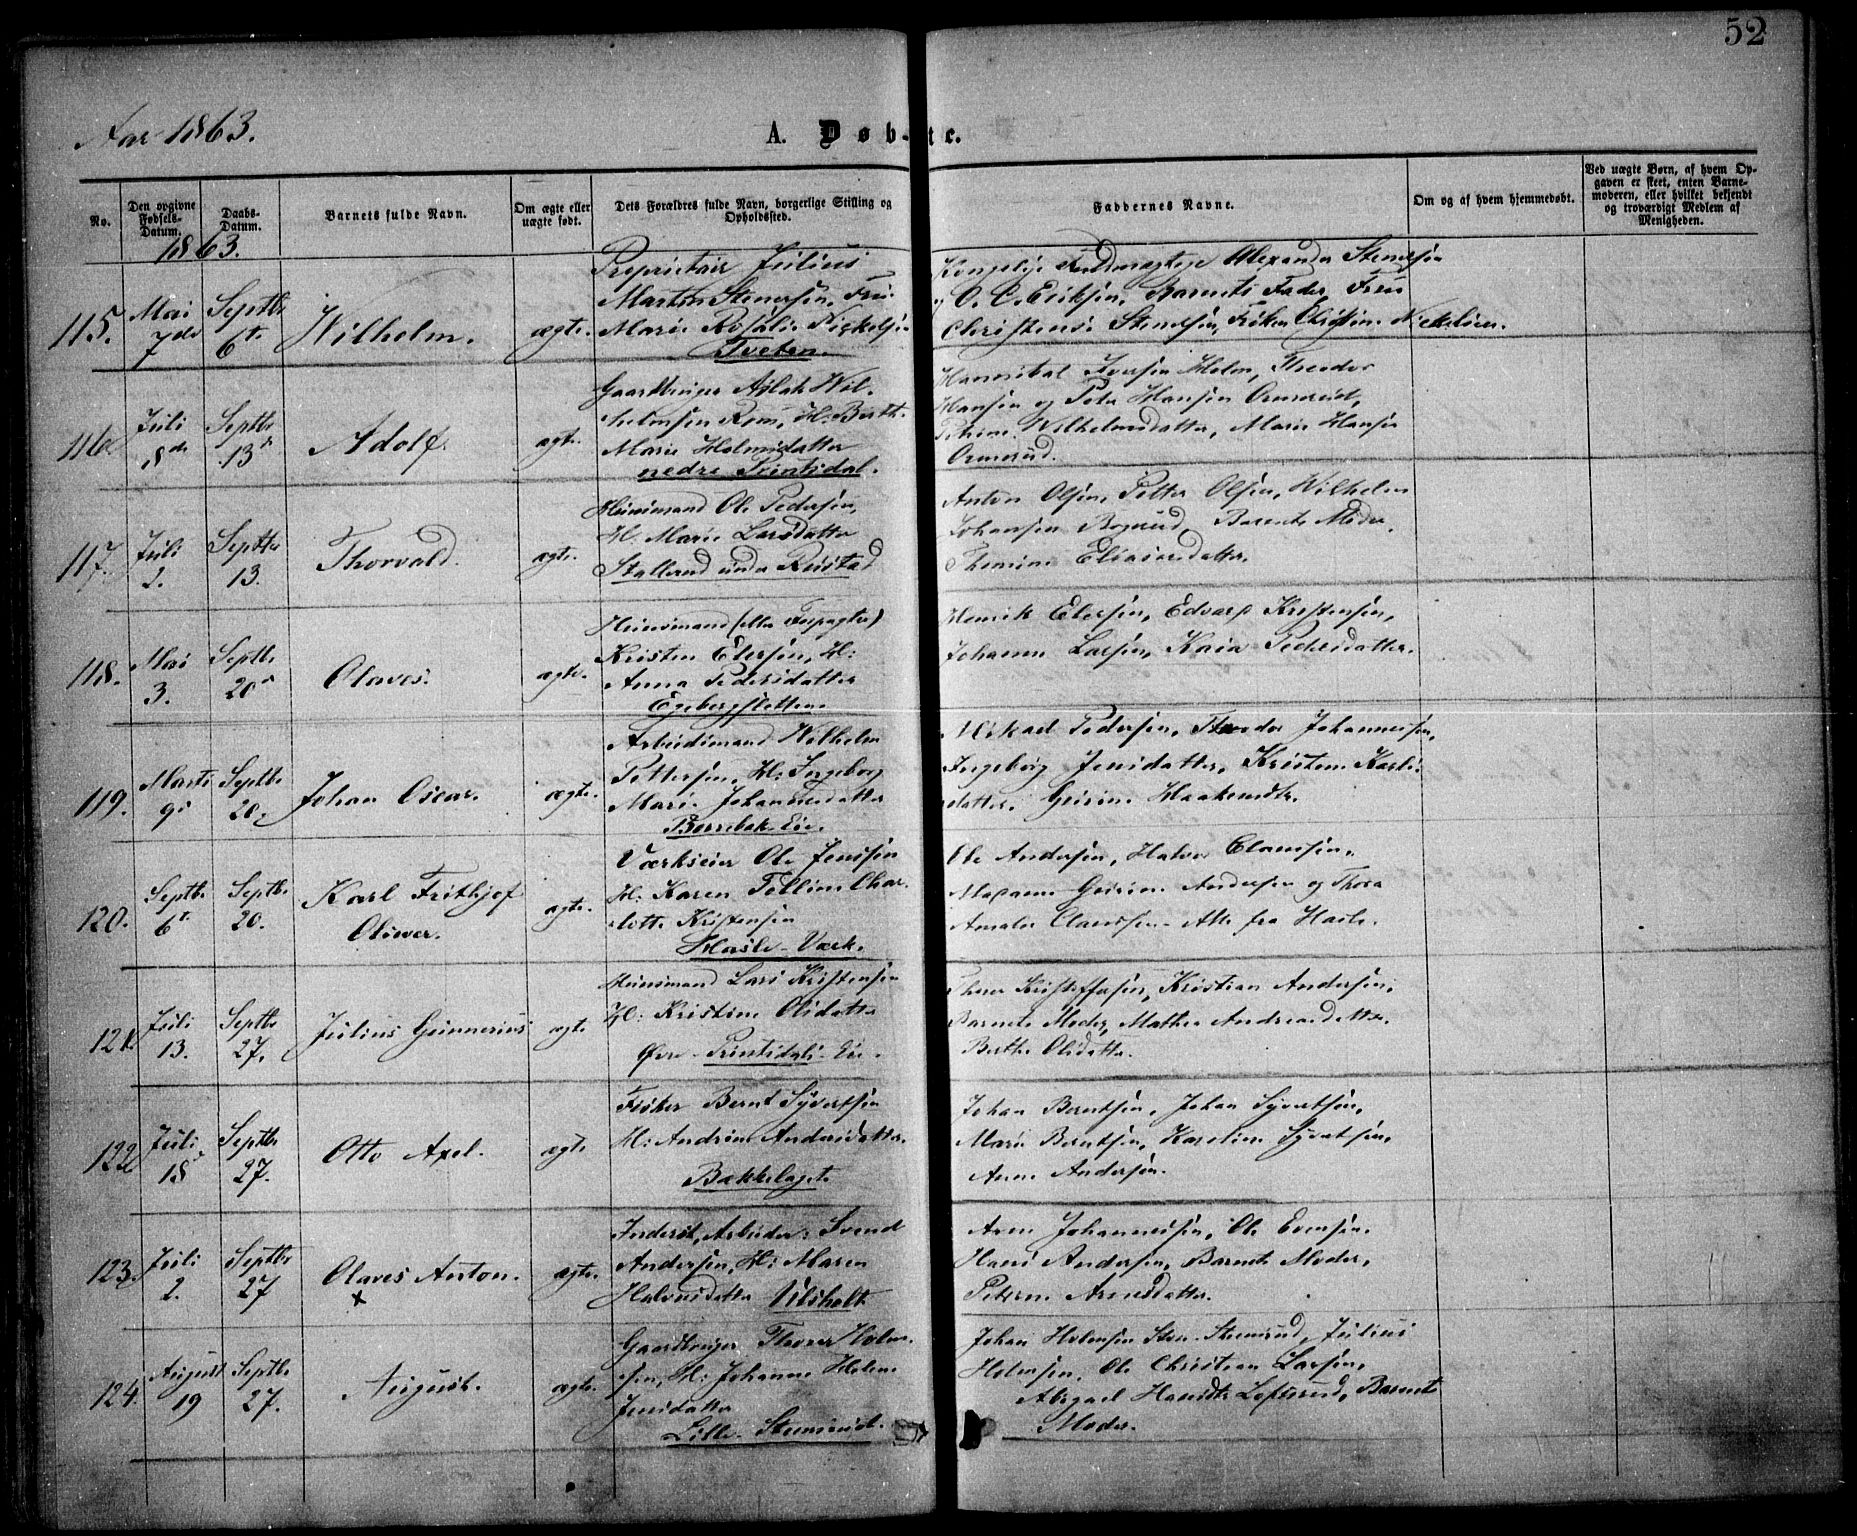 52
Aar 1863.
A. Døb-te.
No.
Den opgivne Fødsels-Datum.
Daabs-Datum.
Barnets fulde Navn.
Om ægte eller uægte født.
Dets Forældres fulde Navn, borgerlige Stilling og Opholdssted.
Faddernes Navne.
Om og af hvem hjemmedøbt.
Ved uægte Børn, af hvem Opgaven er skeet, enten Barnemoderen, eller hvilket bekjendt og troværdigt Medlem af Menigheden.
1863.
115. Mai 7de Septbr 6te Wilhelm. ægte.
Proprietair Julius
Marton Stenersen, Fru
Marie Rosalie
Tveten.
Kongelige Fuldmægtige Alexander Stenersen
O. C. Eriksen, Barnets Fader, Frue
Stenersen, Frøken
116. Juli 8de Septbr 13de Adolf. ægte.
Gaardbruger Aslak Wil-
helmsen Rom, H: Berthe
Marie Holmsdatter
nedre Printsdal.
Hannibal Iversen Holm, Theodor
Hansen og Peter Hansen Ormerud,
Wilhelmsdatter, Marie Hansen
Ormerud.
117. Juli 2. Septbr 13. Thorvald. ægte.
Huusmand Ole Pedersen,
H: Marie Larsdatter
Stalland under Riistad
Anton Olsen, Petter Olsen, Wilhelm
Johansen Bogerud, Barnets Moder,
Eliasdatter.
118. Mai 3. Septbr 20de Olaves. ægte.
Huusmand (eller Forpagter)
Kristen Elersen, H:
Anna Pedersdatter
Egebergsletten.
Henrik Elersen, Edvard Kristensen,
Johanne Larsen, Karia Pedersdatter.
119. Marts 9. Septbr 20. Johan Oscar. ægte.
Arbeidsmand Wilhelm
Pettersen, H: Ingeborg
Marie Johannesdatter
Bærrebæk Eie.
Mikael Pedersen, Theodor Johannessen,
Ingeborg Jensdatter, Kristine Karls-
datter,
120. Septbr 6te Septbr 20. Karl Frithjof Oliver. ægte.
Værkseier Ole Jenssen
H: Karen Char-
lotte Kristensen
Hasle-Værk.
Ole Andersen, Halvor Clausen,
Madame Andersen og Thora
Amalie Claussen. Alle fra Hasle.
121. Juli 13. Septbr 27. Julius Gunnerius ægte
Huusmand Lars Kristensen
H: Kristine Olsdatter
Øvre-Printsdals-Eie.
Thorer Kristoffersen, Kristian Andersen,
Barnets Moder, Mathea Andreasdatter.
Berthe Olsdatter.
122. Juli 18. Septbr 27. Otto Axel. ægte.
Fisker Bernt Syvertsen
H: Andrine Andersdatter.
Bækkelaget.
Johan Berntsen, Johan Syvertsen,
Marie Berntsen, Karoline Syvertsen,
Anne Andersen.
123. Juli 2. Septbr 27 Olaves Anton. ægte.
x
Inderst, Arbeider: Svend
Andersen, H: Maren
Halvorsdatter Ulsholt
Aren Johannessen, Ole Evensen.
Hans Andersen, Barnets Moder,
Arensdatter.
124. August 19 Septbr 27. August. ægte.
Gaardbruger Thorer Holm-
sen, H: Johanne Helene
Jensdatter
Lille-Stensrud.
Johan Holmsen Stor-Stensrud, Julius
Holmsen, Ole Christian Larsen,
Abigael Lofsrud, Barnets
Moder.